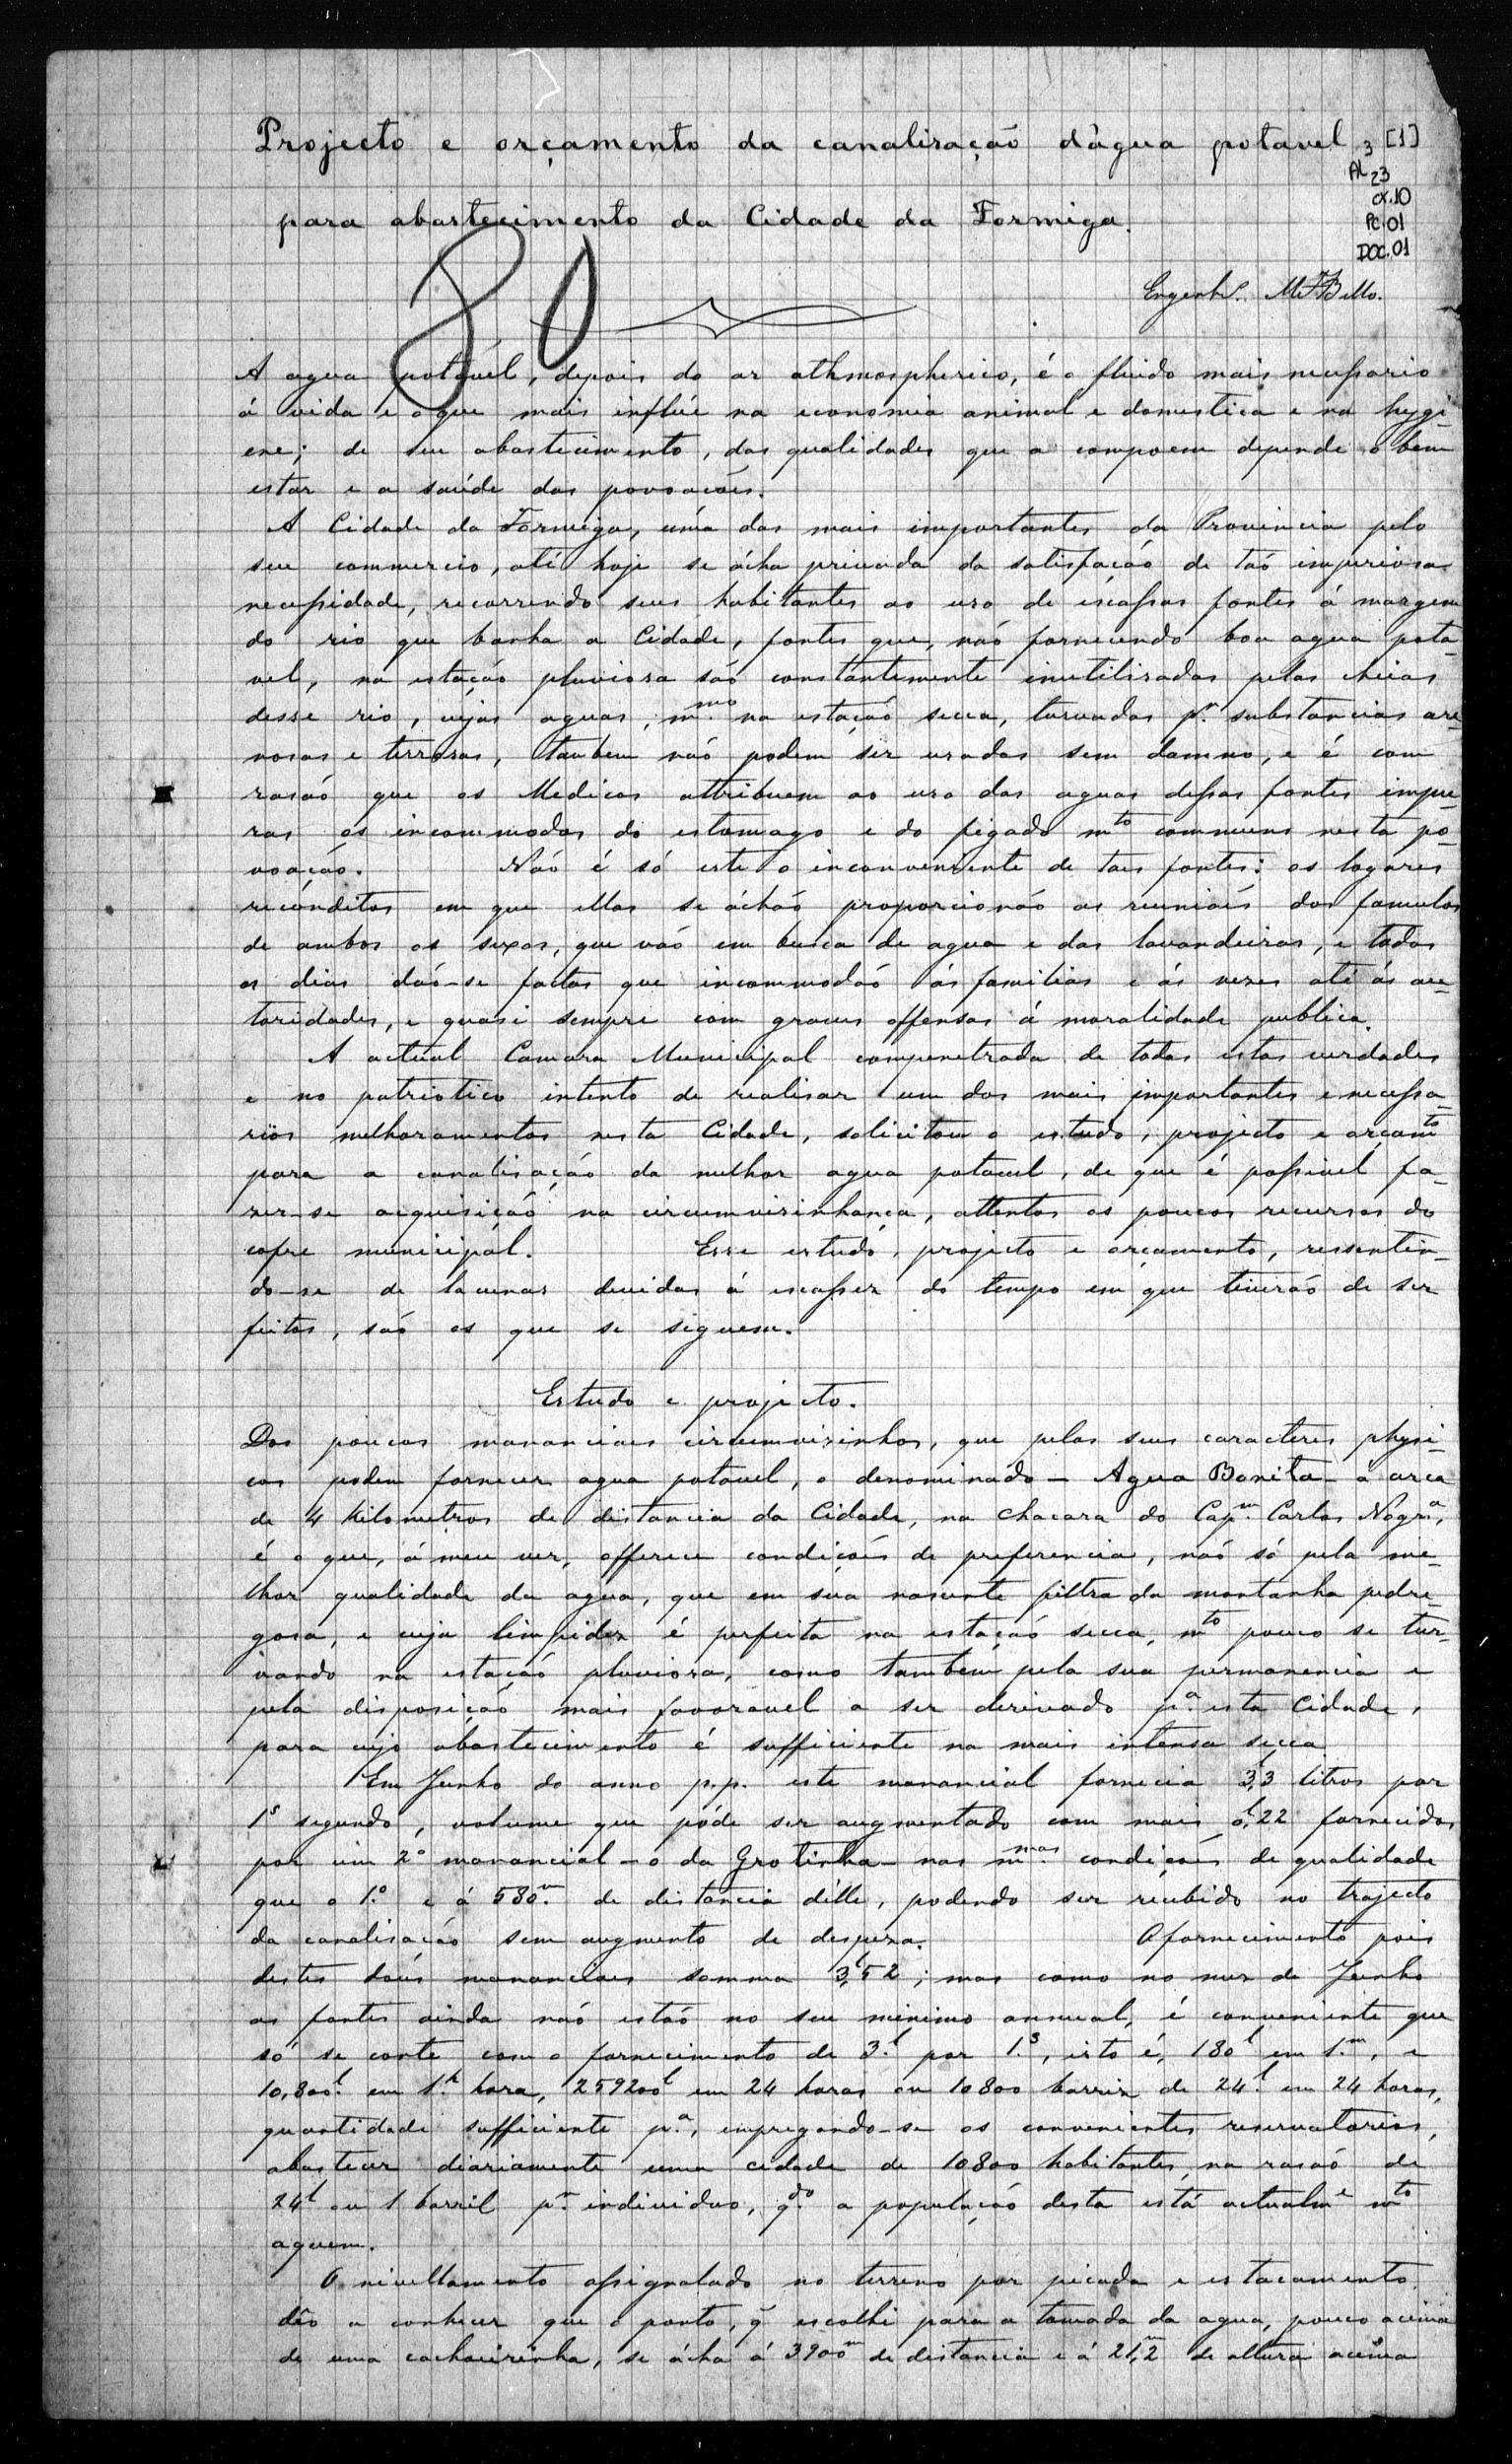 Projecto e orçamento da canalisação d'agua potavel 3 [1]
AL 23
cx.10
para abastecimento da Cidade da Formiga.
PC.01
DOC.01
80
Engenhr.
A agua potavel, depois do ar athmospherico, é o fluido mais necessario
á vida e o que mais influe na economia animal e domestica e na hygi-
ene; de seu abastecimento, das qualidades que a compoem depende o bem
estar e a saúde das povoações.
A Cidade da Formiga, uma das mais importantes da Provincia pelo
seu commercio, até hoje se ácha privada da satisfação de tão imperiosa
necessidade, recorrendo seus habitantes ao uso de escassas fontes á margem
do rio que banha a Cidade, fontes que, não fornecendo boa agua pota-
vel, na estação pluviosa são constantemente inutilisadas pelas cheias
desse rio, cujas aguas, mmo. na estação secca, turvadas pr. substancias are-
nosas e terrosas, tambem não podem ser usadas sem damno, e é com
rasão que os Medicos attribuem ao uso das aguas dessas fontes impu-
ras os incommodos do estomago e do figado mto communs nesta po-
voação. Não é só este o inconveniente de taes fontes: os logares
recónditos em que ellas se áchão proporcionão as reuniões dos famulos
de ambos os sexos, que vão em busca de agua e das lavandeiras, e todos
os dias dão-se factos que incommodão ás familias e ás vezes até ás au-
toridades, e quasi sempre com graves offensas á moralidade publica.
A actual Camara Municipal compenetrada de todas estas verdades
e no patriotico intento de realisar um dos mais importantes e necessa-
rios melhoramentos nesta Cidade, solicitou o estudo, projecto e orçamto
para a canalisação da melhor agua potavel, de que é possivel fa-
zer-se acquisição na circumvisinhança, attentos os poucos recursos do
cofre municipal. Esse estudo, projecto e orçamento, ressentin-
do-se de lacunas devidas á escassez do tempo em que tiverão de ser
feitos, são os que se seguem.
Estudo e projecto.
Dos poucos mananciaes circumvisinhos, que pelos seus caracteres physi-
cos podem fornecer agua potavel, o denominado - Agua Bonita - á cerca
de 4 kilometros de distancia da Cidade, na chacara do Capm. Carlos Nogra,
é o que, á meu ver, offerece condições de preferencia, não só pela me-
lhor qualidade da agua, que em sua nascente filtra da montanha pedre-
gosa, e cuja limpidez é perfeita na estação secca, mto pouco se tur-
vando na estação pluviosa, como tambem pela sua permanencia e
pela disposição mais favoravel a ser derivado pa. esta Cidade,
para cujo abastecimento é sufficiente na mais intensa secca.
Em Junho do anno p.p. este manancial fornecia 3,3 litros por
1s segundo, volume que póde ser augmentado com mais 0,l22 fornecidos
por um 2º manancial - o da Grotinha - nas mmas. condições de qualidade
que o 1.º e á 580m. de distancia délle, podendo ser recebido no trajecto
da canalisação sem augmento de despeza. O fornecimento pois
destes dous mananciaes somma 3,l52; mas como no mez de Junho
as fontes ainda não estão no seu minimo annual, é conveniente que
só se conte com o fornecimento de 3.l por 1.s, isto é, 180l em 1.m, e
10,800l. em 1.h hora, 259200l em 24 horas ou 10800 barris de 24.l em 24 horas,
quantidade sufficiente pa., empregando-se os convenientes reservatorios,
abastecer diariamente uma cidade de 10800 habitantes, na rasão de
24l ou 1 barril pr. individuo, qdo. a população desta está actualme mto
aquem.
O nivellamento assignalado no terreno por picada e estacamento,
déo a conhecer que o ponto, q̃ escolhi para a tomada da agua, pouco acima
de uma cachoeirinha, se ácha á 3900m de distancia e á 21,m2 de altura acima